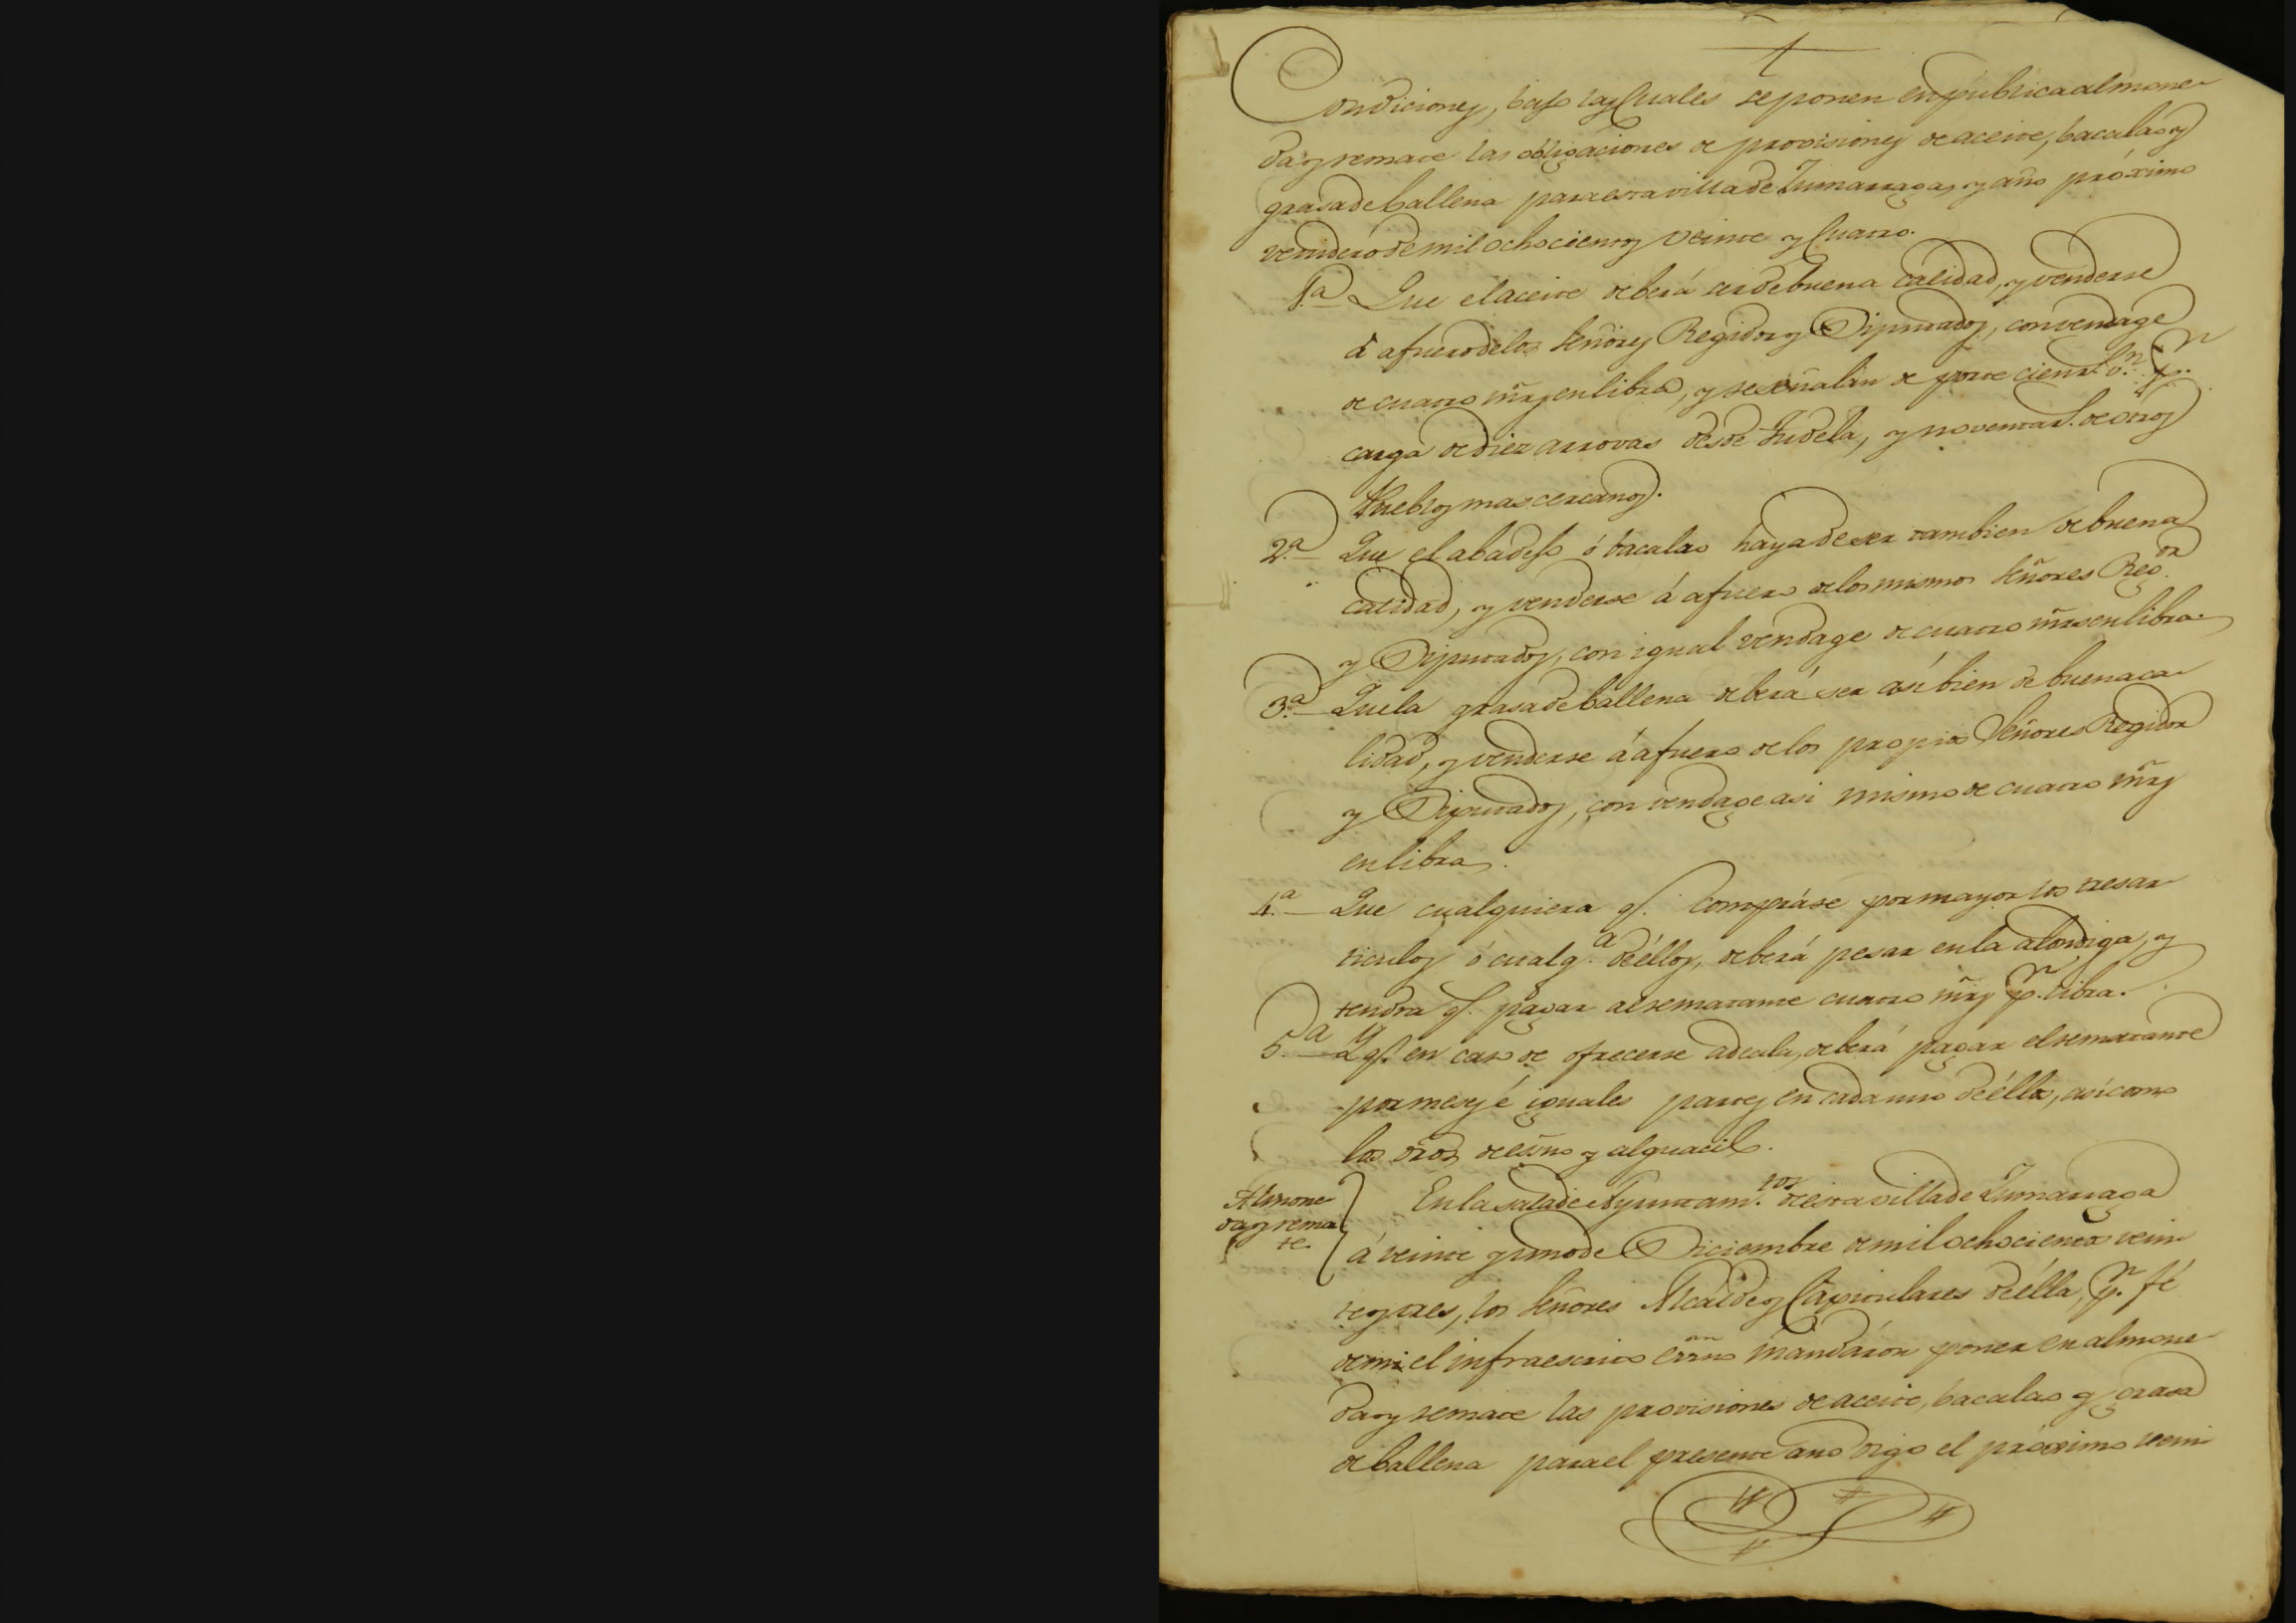 Condiciones, bajo las Cuales se ponen en pública almone-
da y remate las obligaciones de provisiones de aceite, bacalao y
grasa de ballena para esta villa de Zumarraga, y año próximo
venidero de mil ochocientos veinte y Cuatro.
1.a Que el aceite deberá ser de buena calidad, y venderse
á afuero de los Señores Regidor y Diputados, con vendage
de cuatro mrs en libra, y se señalan de porte cient r.s v.n p.r
carga de diez arrovas desde Tudela, y noventa r.s de otros
Pueblos mas cercanos.
2.a Que el abadejo ó bacalao haya de ser tambien de buena
calidad, y venderse á afuero de los mismos Señores Reg.or
y Diputados, con igual vendage de cuatro mrs en libra.
3.a Que la grasa de ballena deberá ser así bien de buena ca-
lidad, y venderse á afuero de los propios Señores Regidor
y Diputados, con vendage asi mismo de cuatro mrs
en libra.
4.a Que cualquiera q.e Comprase por mayor los tres ar-
ticulos ó cualq.a de éllos, deberá pesar en la alondiga, y
tendra q.e pagar al rematante cuatro mrs p.r libra.
5.a Y q.e en caso de ofrecerse adeala, deberá pagar el rematante
por meses é iguales partes en cada uno de éllos, así como
los dros de essno y alguacil.
Almone-
da y rema-
te.
En la sala de Ayuntam.tos de esta villa de Zumarraga
á veinte y uno de Diciembre de mil ochocientos vein-
te y tres, los Señores Alcalde y Capitulares de élla, p.r fé
de mi el infraescrito essno mandáron poner en almone-
da y remate las provisiones de aceite, bacalao y grasa
de ballena para el presente año digo el próximo veni-